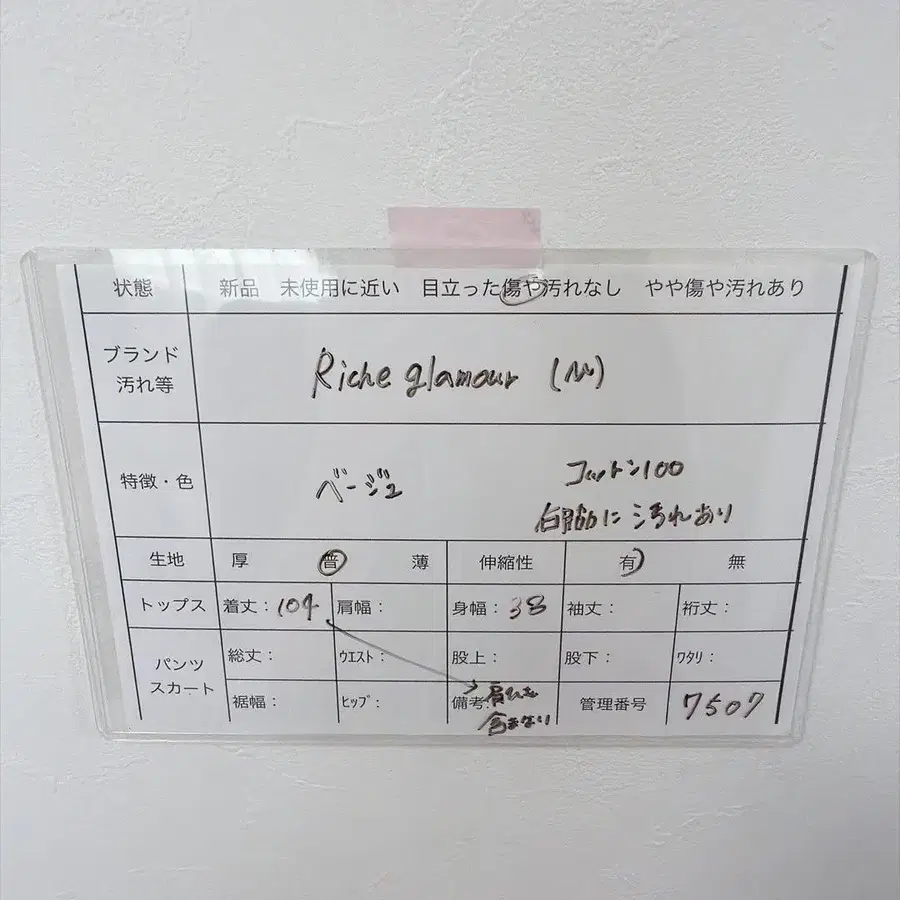 状態 新品 未使用に近い 目立った傷や汚れなし やや傷や汚れあり
ブランド
汚れ等
Riche glamour (M)
特徴・色
ベージュ
コットン100
に汚れあり
生地 厚 普 薄 伸縮性 有 無
トップス 着丈: 104 肩幅: 身幅: 38 袖丈: 裄丈:
パンツ
スカート
総丈: ウエスト: 股上: 股下: ワタリ:
裾幅: ヒップ: 備考: 肩ひも
含まない
管理番号 7507